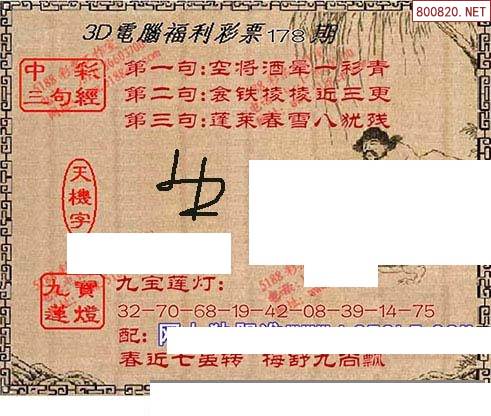 800820.NET
3D電腦福利彩票178期
中彩三句經
第一句:空将酒晕一衫青
第二句:衾铁棱棱近三更
第三句:蓬莱春雪八犹残
天機字
九寶蓮燈
九宝莲灯:
32-70-68-19-42-08-39-14-75
配:
春近七蛮转 梅舒九尚飘